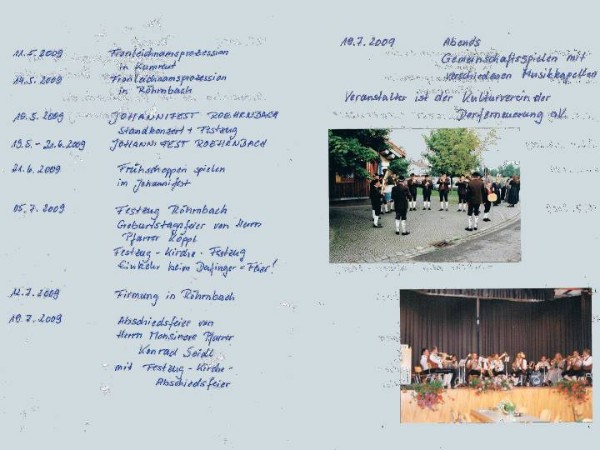 11.5.2009 Fronleichnamsprozession
in Kumreut
14.5.2009 Fronleichnamsprozession
in Röhrnbach
19.5.2009 JOHANNIFEST ROEHRNBACH
Standkonzert + Festzug
19.5.-21.6.2009 JOHANNIFEST ROEHRNBACH
21.6.2009 Frühschoppen spielen
im Johannifest
05.7.2009 Festzug Röhrnbach
Geburtstagsfeier von Herrn
Pfarrer Köppl
Festzug - Kirche - Festzug
Einkehr beim - Feier!
12.7.2009 Firmung in Röhrnbach
19.7.2009 Abschiedsfeier von
Herrn Monsinore Pfarrer
Konrad Seidl
mit Festzug - Kirche -
Abschiedsfeier
19.7.2009 Abends
Gemeinschaftsspielen mit
verschiedenen Musikkapellen
Veranstalter ist der Kulturverein der
Dorferneuerung e.V.